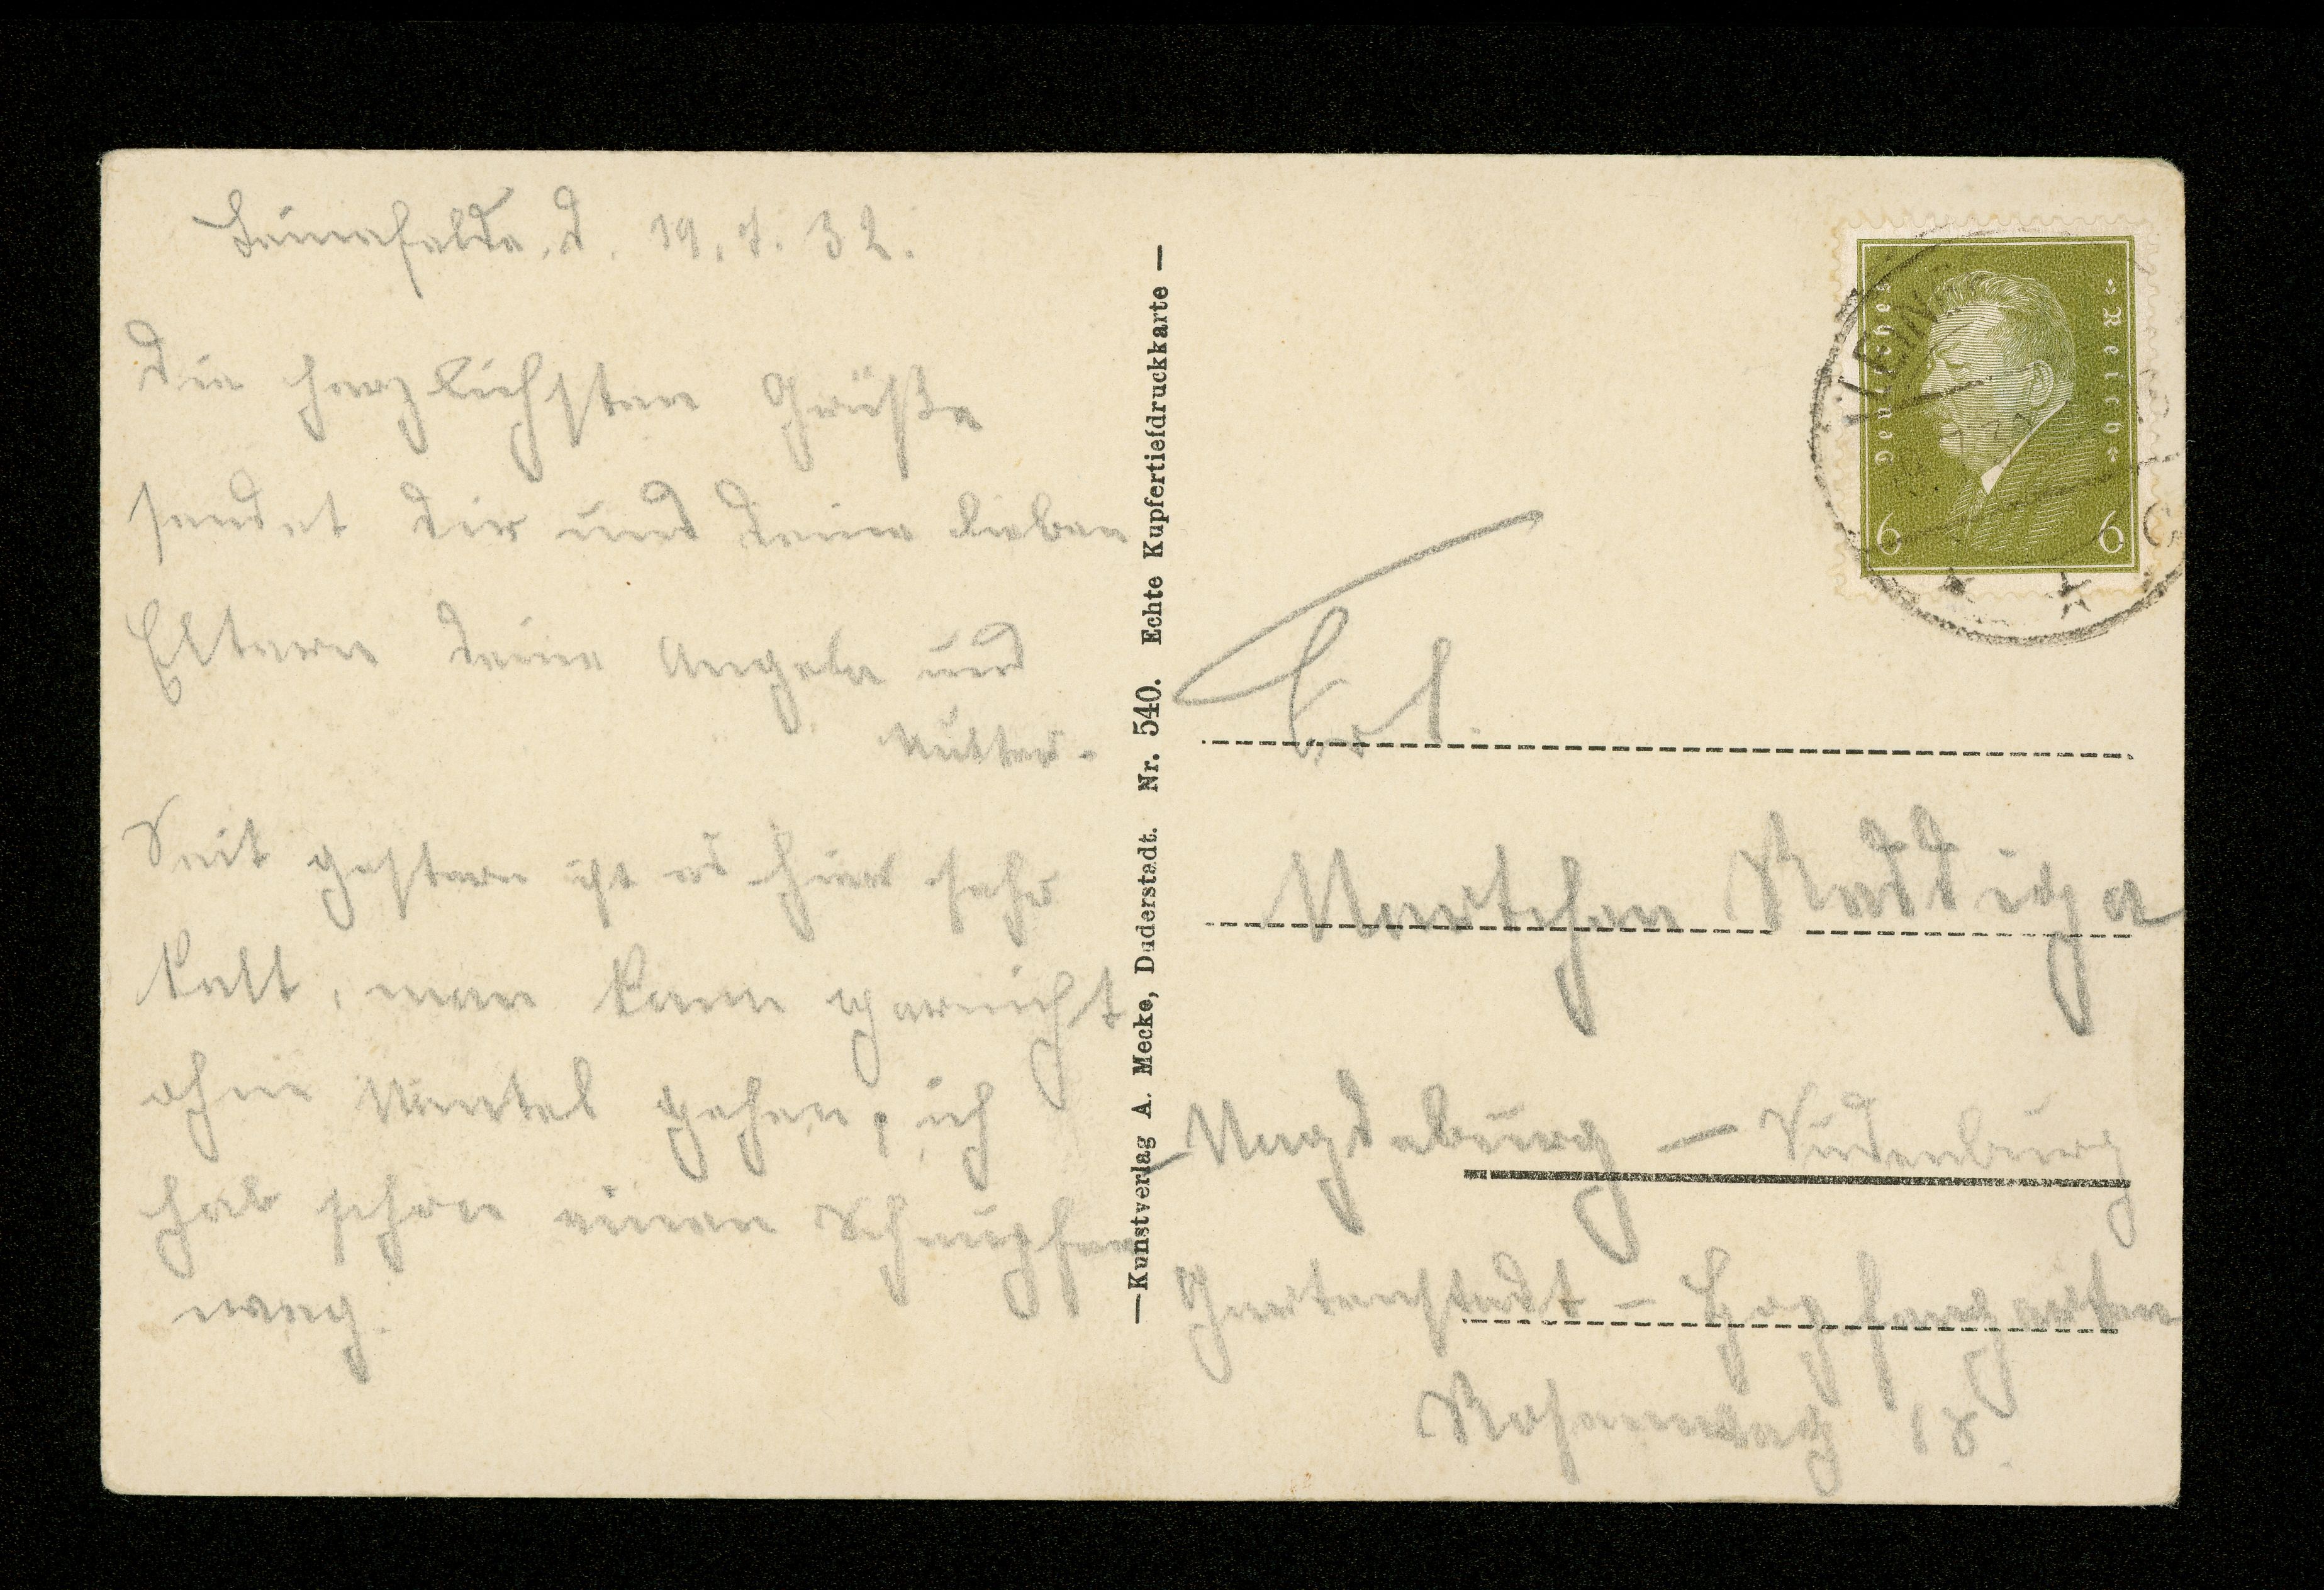 Leinefelde, d. 19. 7. 32.
Die herzlichsten Grüße
sendet dir und deine lieben
Eltern deine Angela und
Mutter.
Seit gestern ist es hier sehr
kalt, man kann garnicht
ohne Mantel gehen, ich
hab schon einen Schnupfen
weg.
— Kunstverlag A. Mecke, Duderstadt. Nr. 540. Echte Kupfertiefdruckkarte —
Deutsches Reich
6 6
Frl.
Martchen Raddiga
Magdeburg – Sudenburg
Gartenstadt – Hopfengarten
Rosenweg 18.